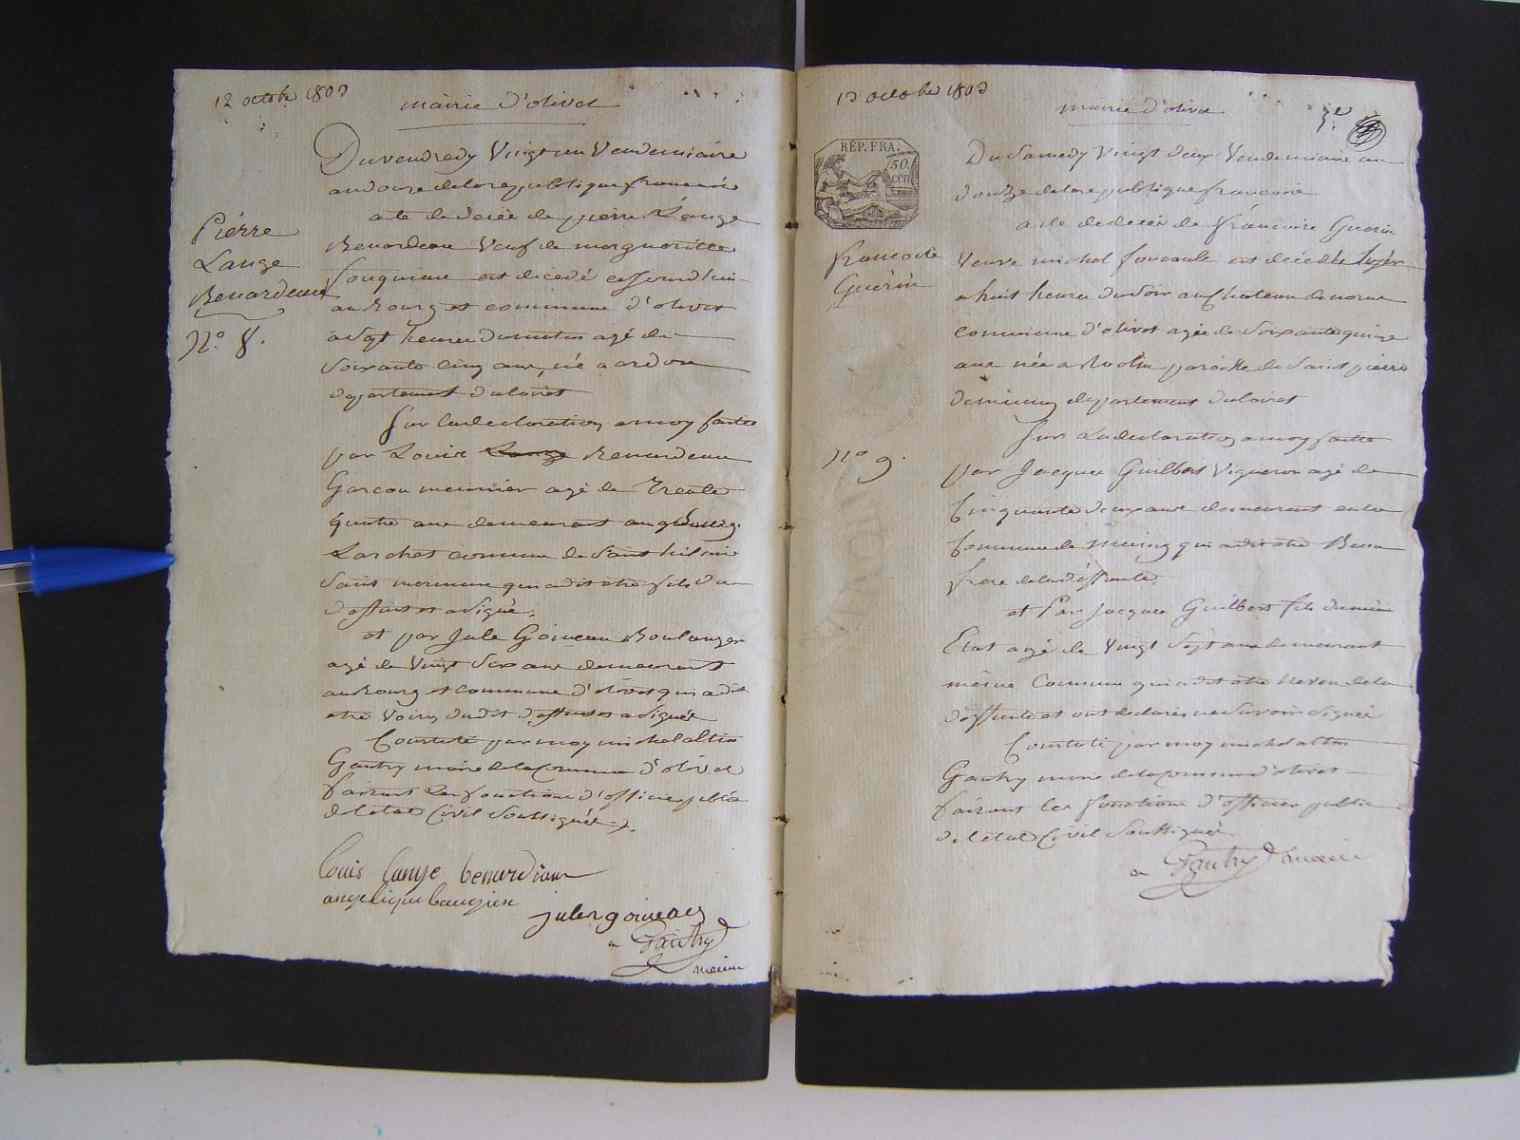 12 octobre 1803
mairie d'olivet
Du vendredy Vingt un Vendemiaire
an douze de la republique francaise
acte de decée de pierre Lange
Benardeau Veuf de margueritte
est decedé cejourdhui
au Bourg et commune d'olivet
a Sept heures du matin agé de
Soixante Cinq ans, né a ardon
departement du loiret
Sur la declaration a moy faitte
par Louis Benardeau
Garcon meunier agé de Trente
quatre ans demeurant
commune de Saint hilaire
Saint mesmin qui a dit etre fils du
deffunt et a Signé,
et par Jule Goineau Boulanger
agé de Vingt Six ans demeurant
au Bourg et commune d'olivet qui a dit
etre Voisin dudit deffunt et a Signé
Constaté par moy michel
Gautry maire de la Commune d'olivet
faisant les fonctions d'officier public
de l'etat Civil Soussigné
Pierre
Lange
Benardeau
N° 8.
louis lange benardeau
angelique
jules goineau
Gautry
maire
13 octobre 1803
mairie d'olivet
3e
RÉP. FRA.
50.
CEN
Du Samedy Vingt deux Vendemiaire an
douze de la republique francaise
acte de decée de francoise Guerin
Veuve michel foucault est decedée hyer
a huit heures du Soir au Chateau de
commune d'olivet agée de Soixante quinze
ans née a paroisse de Saint pierre
departement du loiret
Sur la declaration a moy faitte
par Jacques Guilbert Vigneron agé de
Cinquante deux ans demeurant en la
Commune de qui a dit etre Beau
frere de la deffunte,
et Par Jacques Guilbert fils du meme
Etat agé de Vingt Sept ans demeurant
meme Commune qui a dit etre neveu de la
deffunte et ont declaré ne Savoir Signé
Constaté par moy michel
Gautry maire de la commune d'olivet
faisant les fonctions d'officier public
de l'etat Civil Soussigné
francoise
Guérin
N° 9.
Gautry maire